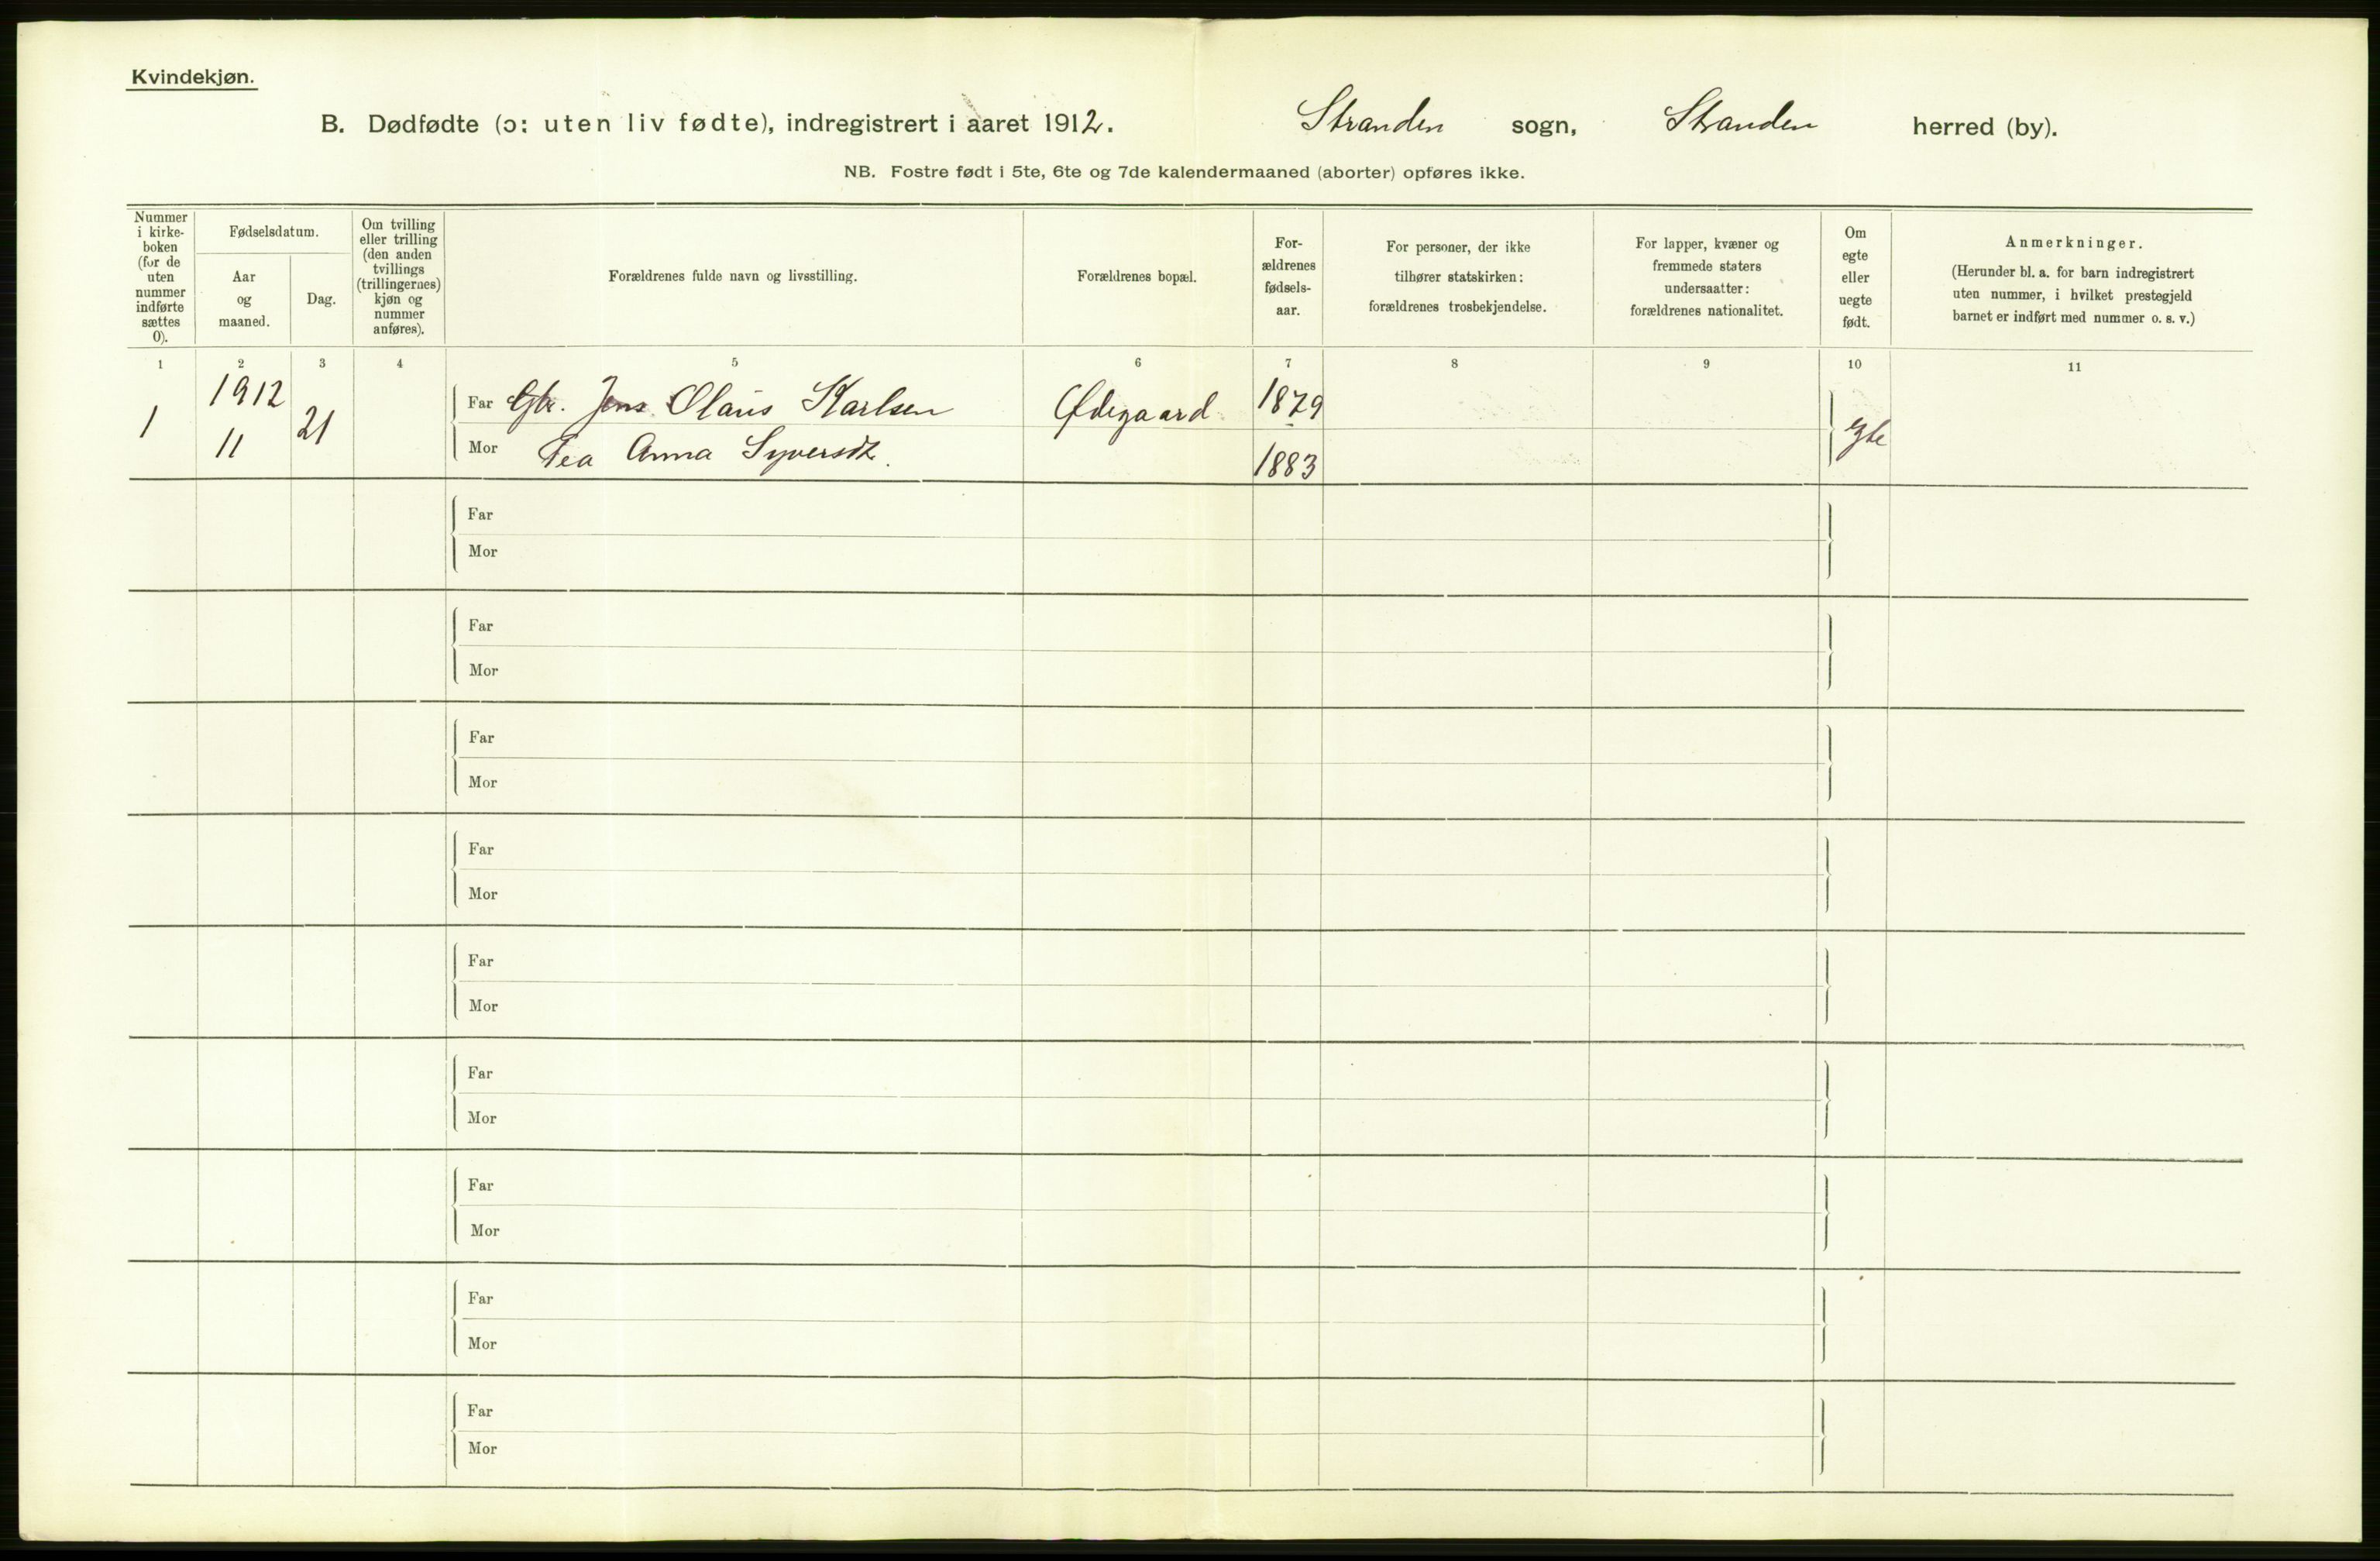 Kvindekjøn.
B. Dødfødte (ɔ: uten liv fødte), indregistrert i aaret 1912. Stranden sogn, Stranden herred (by).
NB. Fostre født i 5te, 6te og 7de kalendermaaned (aborter) opføres ikke.
Nummer
i kirke-
boken
(for de
uten
nummer
indførte
sættes
0).
Fødselsdatum.
Aar
og
maaned.
Dag.
Om tvilling
eller trilling
(den anden
tvillings
(trillingernes)
kjøn og
nummer
anføres).
Forældrenes fulde navn og livsstilling.
Forældrenes bopæl.
For-
ældrenes
fødsels-
aar.
For personer, der ikke
tilhører statskirken:
forældrenes trosbekjendelse.
For lapper, kvæner og
fremmede staters
undersaatter:
forældrenes nationalitet.
Om
egte
eller
uegte
født.
Anmerkninger.
(Herunder bl. a. for barn indregistrert
uten nummer, i hvilket prestegjeld
barnet er indført med nummer o. s. v.)
1 2 3 4 5 6 7 8 9 10 11
1 1912 21 Far Gbr. Jens Olaus Karlsen Ødegaard 1879 Gte
11 Mor Tea Anna Syversdt. 1883
Far
Mor
Far
Mor
Far
Mor
Far
Mor
Far
Mor
Far
Mor
Far
Mor
Far
Mor
Far
Mor